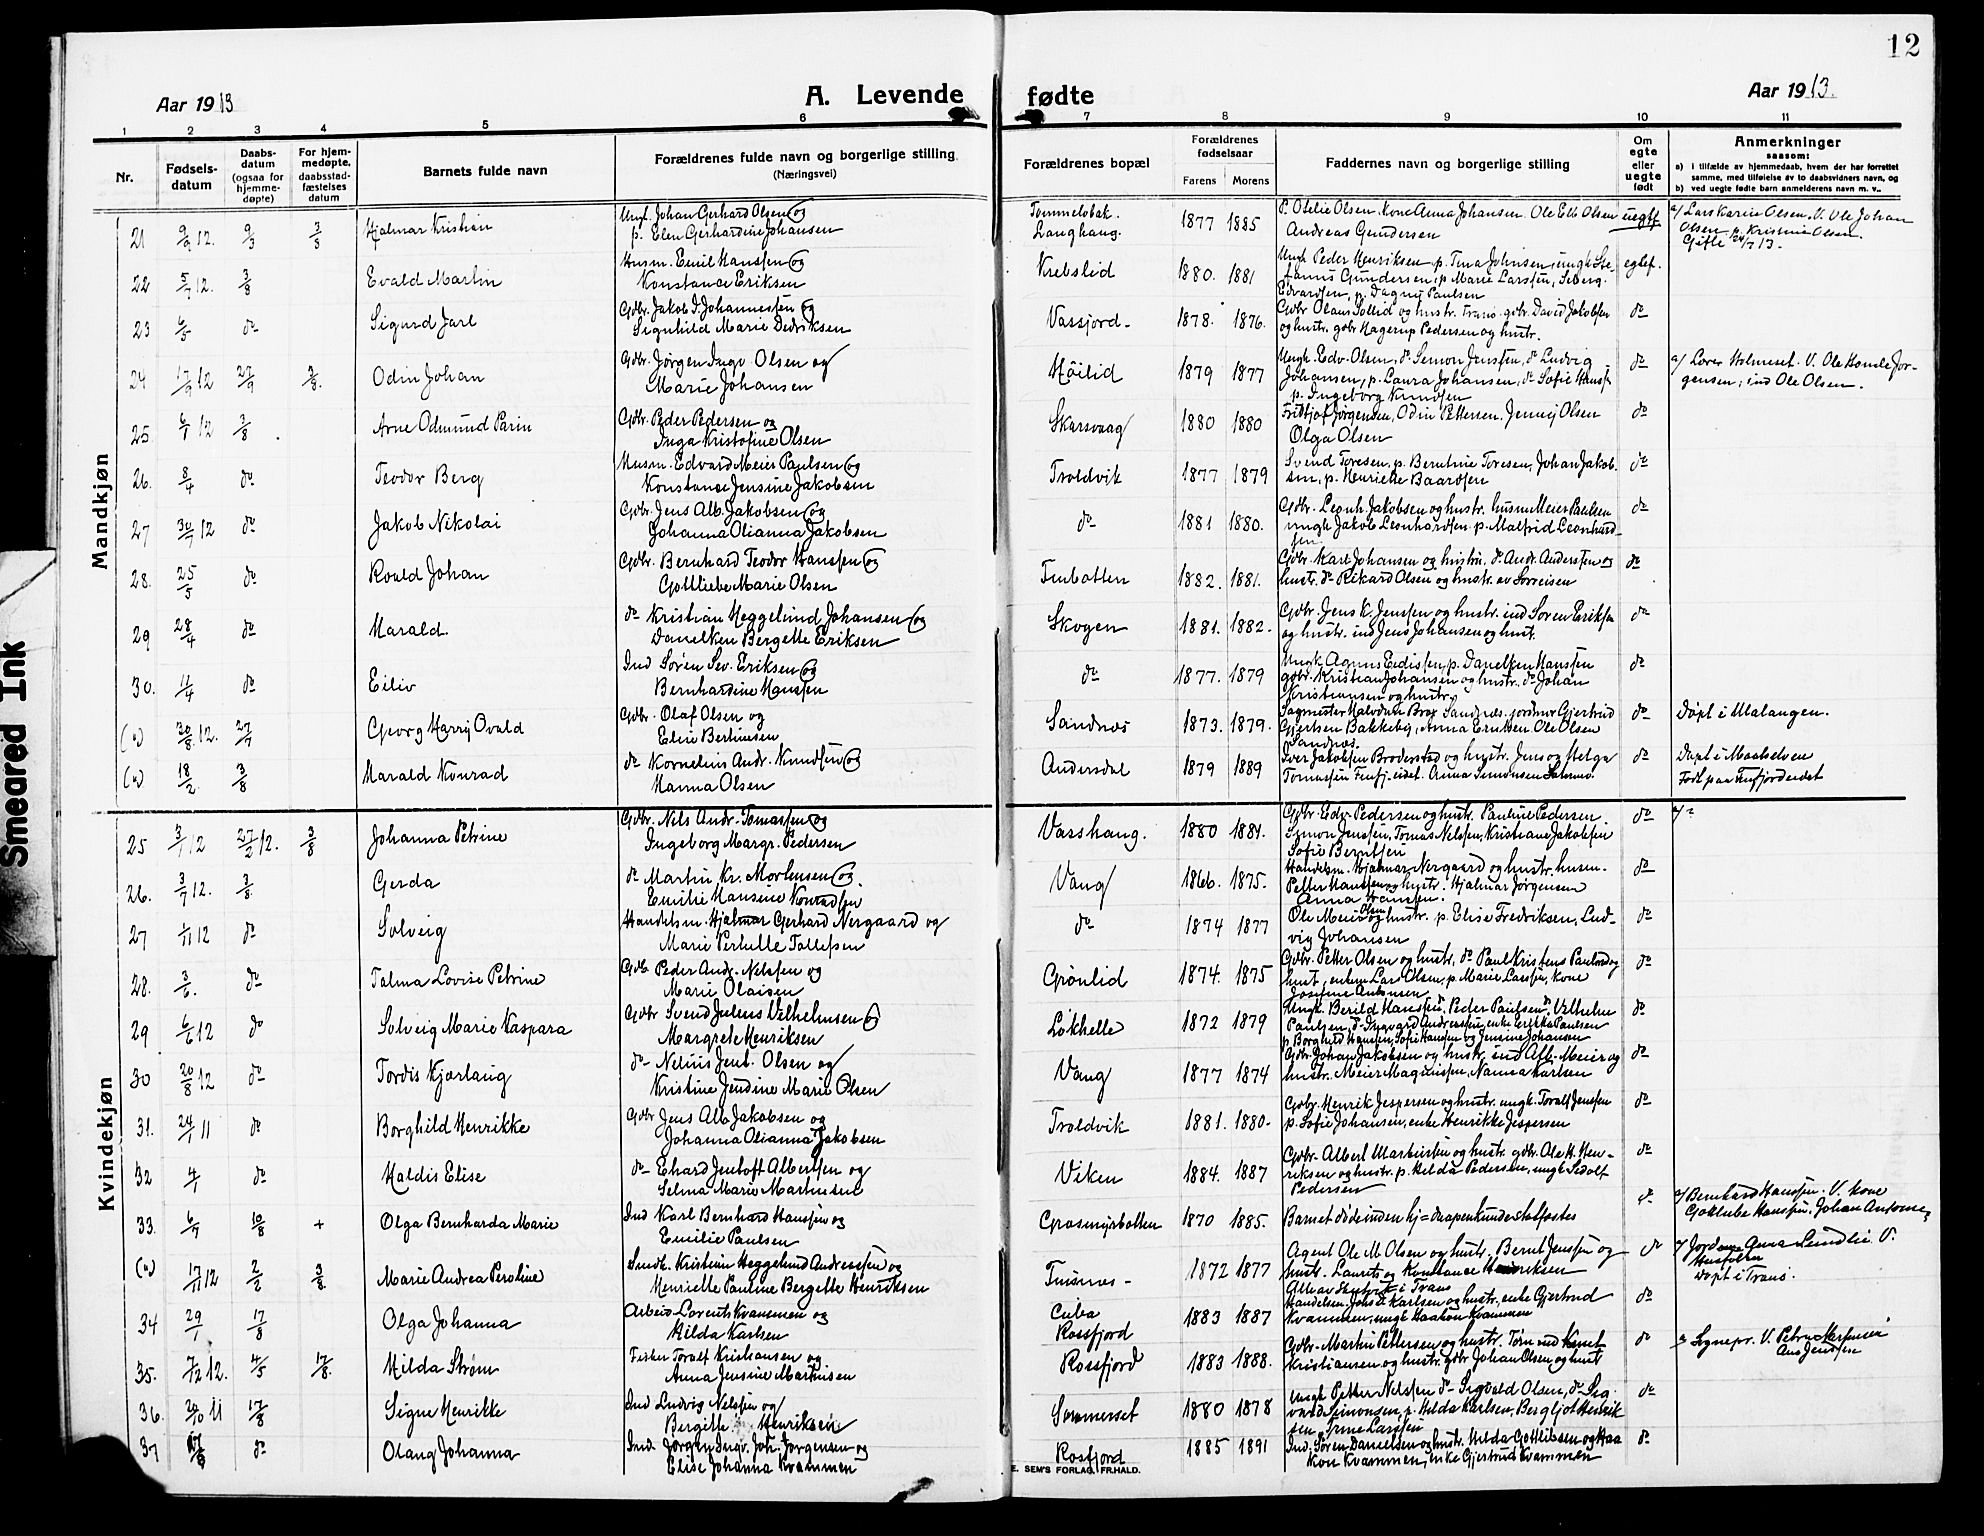 12
Aar 1913
A. Levende fødte
Aar 1913.
1 2 3 4 5 6 7 8 9 10 11
Nr.
Fødsels-
datum
Daabs-
datum
(ogsaa for
hjemme-
døpte)
For hjem-
medøpte,
daabsstad-
fæstelses
datum
Barnets fulde navn
Forældrenes fulde navn og borgerlige stilling
(Næringsvei)
Forældrenes bopæl
Forældrenes
fødselsaar
Farens Morens
Faddernes navn og borgerlige stilling
Om
egte
eller
uegte
født
Anmerkninger
saasom:
a) i tilfælde av hjemmedaab, hvem der har forrettet
samme, med tilføielse av to daabsvidners navn, og
b) ved uegte fødte barn anmelderens navn m. v.
Mandkjøn
21 9/9 12. 9/3 3/8 Hjalmar Kristian
Ungk. Johan Gerhard Olsen og
p. Elen Gerhardine Johansen
Langhaug. 1877 1885
P. Otelie Olsen, Kone Anna Johansen. Ole Elb. Olsen
Andreas Gundersen
uegte
Olsen, p. Kristine Olsen.
Gifte 24/7 13.
22 5/7 12. 3/8 Evald Martin
Husm. Emil Hanssen og
Konstance Eriksen
Krebslid 1880. 1881
Ungk. Peder Henriksen, p. Tina Johnsen, ungk. Ste-
fanus Gundersen, p. Marie Larssen, Seberg
Edvardsen, p. Dagny Paulsen
egtef.
23 6/5 do Sigurd Jarl
Gdbr. Jakob I. Johannessen og
Signhild Marie Dedriksen
Vassjord 1878. 1876.
Gdbr Olaus Sollid og hustr. Tranö. gdbr. David Jakobsen
og hustr. gdbr Hagerup Pedersen og hustr.
do
24 17/9 12 27/9 3/8. Odin Johan
Gdbr. Jørgen Ingv. Olsen og
Marie Johansen
Höilid 1879 1877
Ungk. Edv. Olsen, do Simon Jenssen, do Ludvig
Johansen, p. Laura Johansen, do Sofie Hanss.
p. Ingeborg Knudsen
do
a/ Lærer Holmeset. V. Ole Hemle Jør-
gensen; ind Ole Olsen.
25. 6/1 12 3/8 Arne Odmund Parin
Gdbr. Peder Pedersen og
Inga Kristofine Olsen
Skarsvaag 1880 1880
Fritbjof Jørgensen, Odin Pettersen. Jenny Olsen
Olga Olsen
do
26. 8/4 do Teodor Berg
Husm. Edvard Meier Paulsen og
Konstance Jensine Jakobsen
Troldvik 1877 1879
Svend Toresen, p. Berntine Toresen, Johan Jakob-
sen, p. Henrikke Baardsen
do
27 30/7 12 do Jakob Nikolai
Gdbr. Jens Alb. Jakobsen og
Johanna Olianna Jakobsen
do 1881 1880.
Gdbr. Leonh. Jakobsen og hustr. husm Meier Paulsen
ungk Jakob Leonhardsen p. Malfrid Leonhard-
sen
do
28. 25/5 do Roald Johan
Gdbr. Bernhard Teodor Hanssen og
Gottliebe Marie Olsen
Finbotten 1882. 1881.
Gdbr. Karl Johansen og hustru. do Andr. Anderssen og
hustr. do Rikard Olsen og hustr. av Sørreisen
do
29 28/4 do Harald.
do Kristian Heggelund Johansen og
Danelken Bergette Eriksen
Skogen 1881. 1882.
Gdbr. Jens K. Jenssen og hustr. ind Søren Eriksen
og hustr. ind Jens Johansen og hust.
do
30. 11/4 do Eiliv
Ind Sørén Sev. Eriksen og
Bernhardine Hanssen
do 1877. 1879
p. Danelken Hanssen
gdbr. Kristian Johansen og hustr. do Johan
Kristiansen og hustr.
do
(") 30/8 12. 27/7 Georg Harry Ovald
Gdbr. Olaf Olsen og
Elise Bertinusen
Sandnæs 1873. 1879.
Gjertsen Bakkeby, Anna Erntsen Ole Olsen
Sandnæs.
do
Døpt i Malangen.
(") 18/2 3/8 Harald Konrad
do Kornelius Andr. Knudsen og
Hanna Olsen
Andersdal 1879 1889
Iver Jakobsen Broderstad og hustr. Jens og Helga
do
Døpt i Maalselven
Født paa Finfjordeidet
Kvindekjøn
25 3/1 12 27/2 12. 3/8 Johanna Petrine
Gdbr. Nils Andr. Tomassen og
Ingeborg Margr. Pedersen
Vasshaug. 1880 1881.
Gdbr. Edv. Pedersen og hustr. Pauline Pedersen
Simon Jenssen, Tomas Nelssen, Kristiane Jakobsen
Sofie Berntsen
do a/-
26. 3/7 12. 3/8 Gerda
do Martin Kr. Mortensen og
Emilie Hansine Konradsen
Vang 1866. 1875.
Handelsm. Hjalmar Nergaard og hustr. husm.
Petter Hanssen og hustr. Hjalmar Jørgensen
Anna Hanssen.
do
27 1/11 12 do Solveig
Handelsm. Hjalmar Gerhard Nergaard og
Marie Pernille Tollefsen
do 1874 1877
Ole Meier Olsen og hustr. p. Elise Fredriksen, Lud-
vig Johansen
do
28. 3/6. do Talma Lovise Petrine
Gdb Peder Andr. Nelssen og
Marie Olaisen
Grönlid 1874. 1875
Gdbr. Petter Olsen og hustr, do Paul Kristens Paulsen og
hust, enkem Lars Olsen, p. Marie Larssen, kone
Josefine Antonsen
do
29 6/6 12 do Solveig Marie Kaspara
Gdbr Svend Julius Vilhelmsen og
Margrete Henriksen
Lökhelle 1872 1879
Ungk. Berild Hanssen, do Peder Paulsen, do Vilhelm
Paulsen, do Ingvard Andreassen, enke Erikka Paulsen
p Borghild Hansen, Sofie Hanssen og Jensine Johansen
do
30 20/8 12 do Tordis Kjærlaug
do Nelius Jent. Olsen og
Kristine Jendine Marie Olsen
Vang 1877 1874
Gdbr. Johan Jakobsen og hustr. ind Alb. Meier og
hustr. Meier Magnussen, Nanna Karlsen
do
31. 24/1 11 do Borghild Henrikke
Gdbr Jens Alb Jakobsen og
Johanna Olianna Jakobsen
Troldvik 1881. 1880.
Gdbr. Henrik Jespersen og hustr. ungk. Toralf Jenssen
p. Sofie Johansen, enke Henrikke Jespersen
do
32 4/1 do Haldis Elise
do Ehard Jentoft Albertsen og
Selma Marie Martinsen
Viken 1884. 1887
Gdbr. Albert Martinsen og hustr. gdbr. Ole H. Hen-
riksen og hustr. p. Hilda Pedersen, ungk Sedolf
Pedersen
do
33. 6/7 10/8 + Olga Bernharda Marie
Ind Karl Bernhard Hanssen og
Emilie Paulsen
Græsmyrbotten 1870 1885.
Barnet døde inden hj=daapen kunde stadfæstes
do
a/ Bernhard Hanssen. V. kone
Gotliebe Hanssen, Johan Antonsen
(") 17/11 12 2/2 3/8 Marie Andrea Peroline
Smedl. Kristian Heggelund Andreassen og
Henriette Pauline Bergette Henriksen
Finsnes 1872 1877
Agent Ole M. Olsen og hustr. Bernt Jenssen og
hustr. Laurits og Konstance Henriksen
do
Døpt i Tranö.
34 29/1 17/8 Olga Johanna
Arbeid Lorents Kvammen og
Hilda Karlsen
Cuba
Rossfjord 1883 1887
Handelsm. Johs E Karlsen og hustr, enke Gjertrud
Kvammen, ungk Haakon Kvammen
do
35. 7/12 12. 4/5 17/8. Hilda Strøm
Fisker Toralf Kristiansen og
Anna Jensine Martinsen
Rossfjord 1883 1888.
Gdbr. Martin Pettersen og hustr.
Kristiansen og hustr. gdbr Johan Olsen og hust
do
36. 20/10 11 17/8 Signe Henrikke
Ind Ludvig Nelssen og
Bergitte Henriksen
Sommerset 1880 1878
Ungk Petter Nelssen do Sigvald Olsen, do Sig-
vard Simonsen, p. Hilda Karlsen, Bergljot Henrik
sen, Trine Larssen
do
37 17/8 do Olaug Johanna
Ind. Jørgen Ingv. Joh. Jørgensen og
Elise Johanna Kvammen
Rosfjord 1885 1891
Ind. Søren Danielsen og hustr. Hilda Gottlibsen og Haa
kon Kvammen, enke Gjertrud Kvammen
do
E. SEM'S FORLAG, FR.HALD.
Smeared Ink